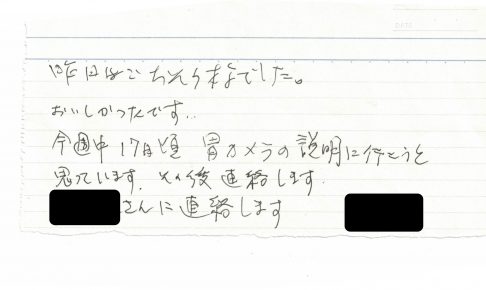 昨日はごちそう様でした。
おいしかったです..
今週中17日頃 胃カメラの説明に行こうと
思っています. その後連絡します.
さんに連絡します
DATE